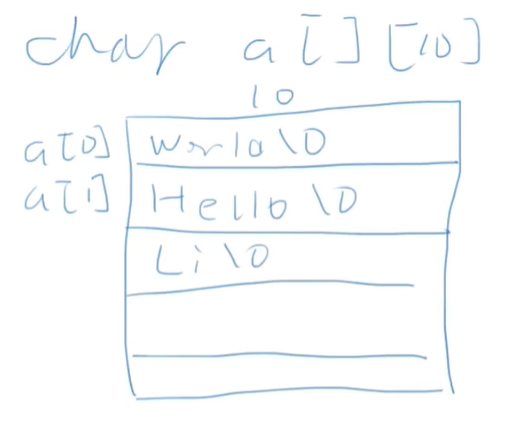 char a[][10]
10
a[0] World\0
a[1] Hello\0
Li\0